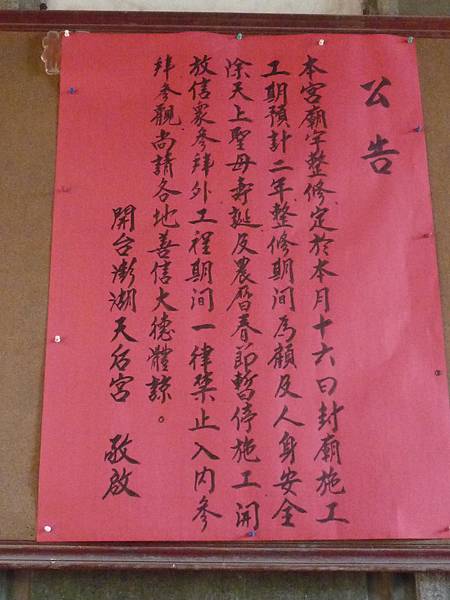 公告
本宮廟宇整修定於本月十六日封廟施工
工期預計二年整修期间為顧及人身安全
除天上聖母壽誕及農曆春節暫停施工開
放信眾參拜外工程期间一律禁止入內參
拜參觀尚請各地善信大德體諒。
開台澎湖天后宮 敬啟